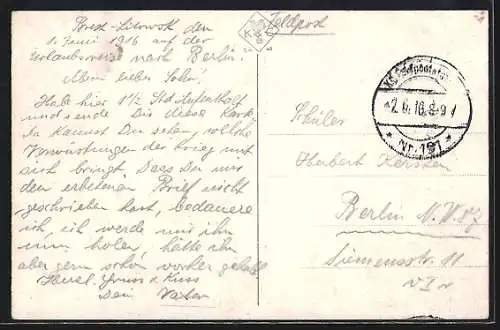 Brest-Litowsk den
1. Juni 1916 auf der
Urlaubsreise nach Berlin.
Mein lieber Sohn!
Habe hier 1½ Std Aufenthalt
und sende Dir diese Karte
Du kannst Du sehen, welche
Verwüstungen der Krieg mit
sich bringt. Dass Du mir
den erbetenen Brief nicht
geschrieben hast, bedauere
ich, ich werde mir ihn
nun holen, hätte ihn
aber gern schon vorher gehabt
Herzl. Gruss u Kuss
Dein Vater
Feldpost
2.6.16. 8-9
Nr. 191
Schüler
Herbert Kersten
Berlin N.W. 87
Siemensstr. 11